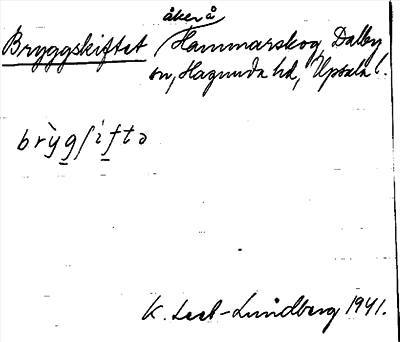 åker å
Bryggskiftet Hammarskog, Dalby
sn, Hagunda hd, Upsala l.
brỳgʃiftə
K. Leel-Lundberg 1941.